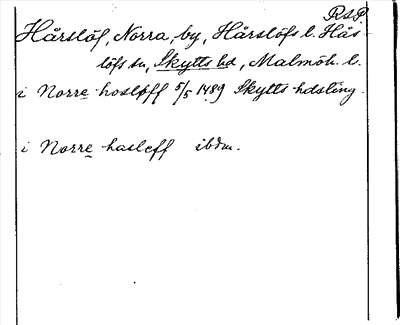 RAP
Hårslöf, Norra, by, Hårslöfs l. Hås-
löfs sn, Skytts hd, Malmöh. l.
i Norre hosløff 5/5 1489 Skytts hdsting.
i Norre hasleff ibdm.